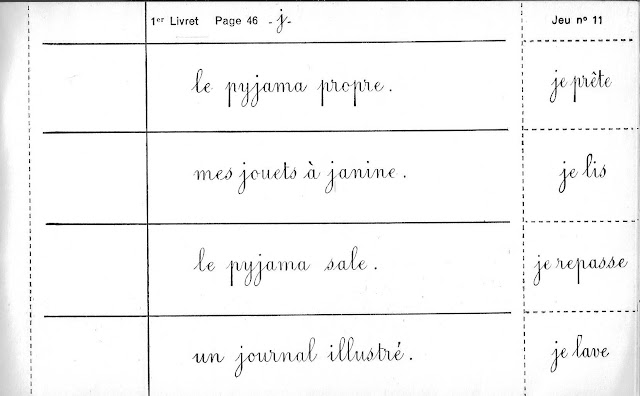 1er Livret Page 46 - j - Jeu nº 11
le pyjama propre. je prête
mes jouets à janine. je lis
le pyjama sale. je repasse
un journal illustré. je lave